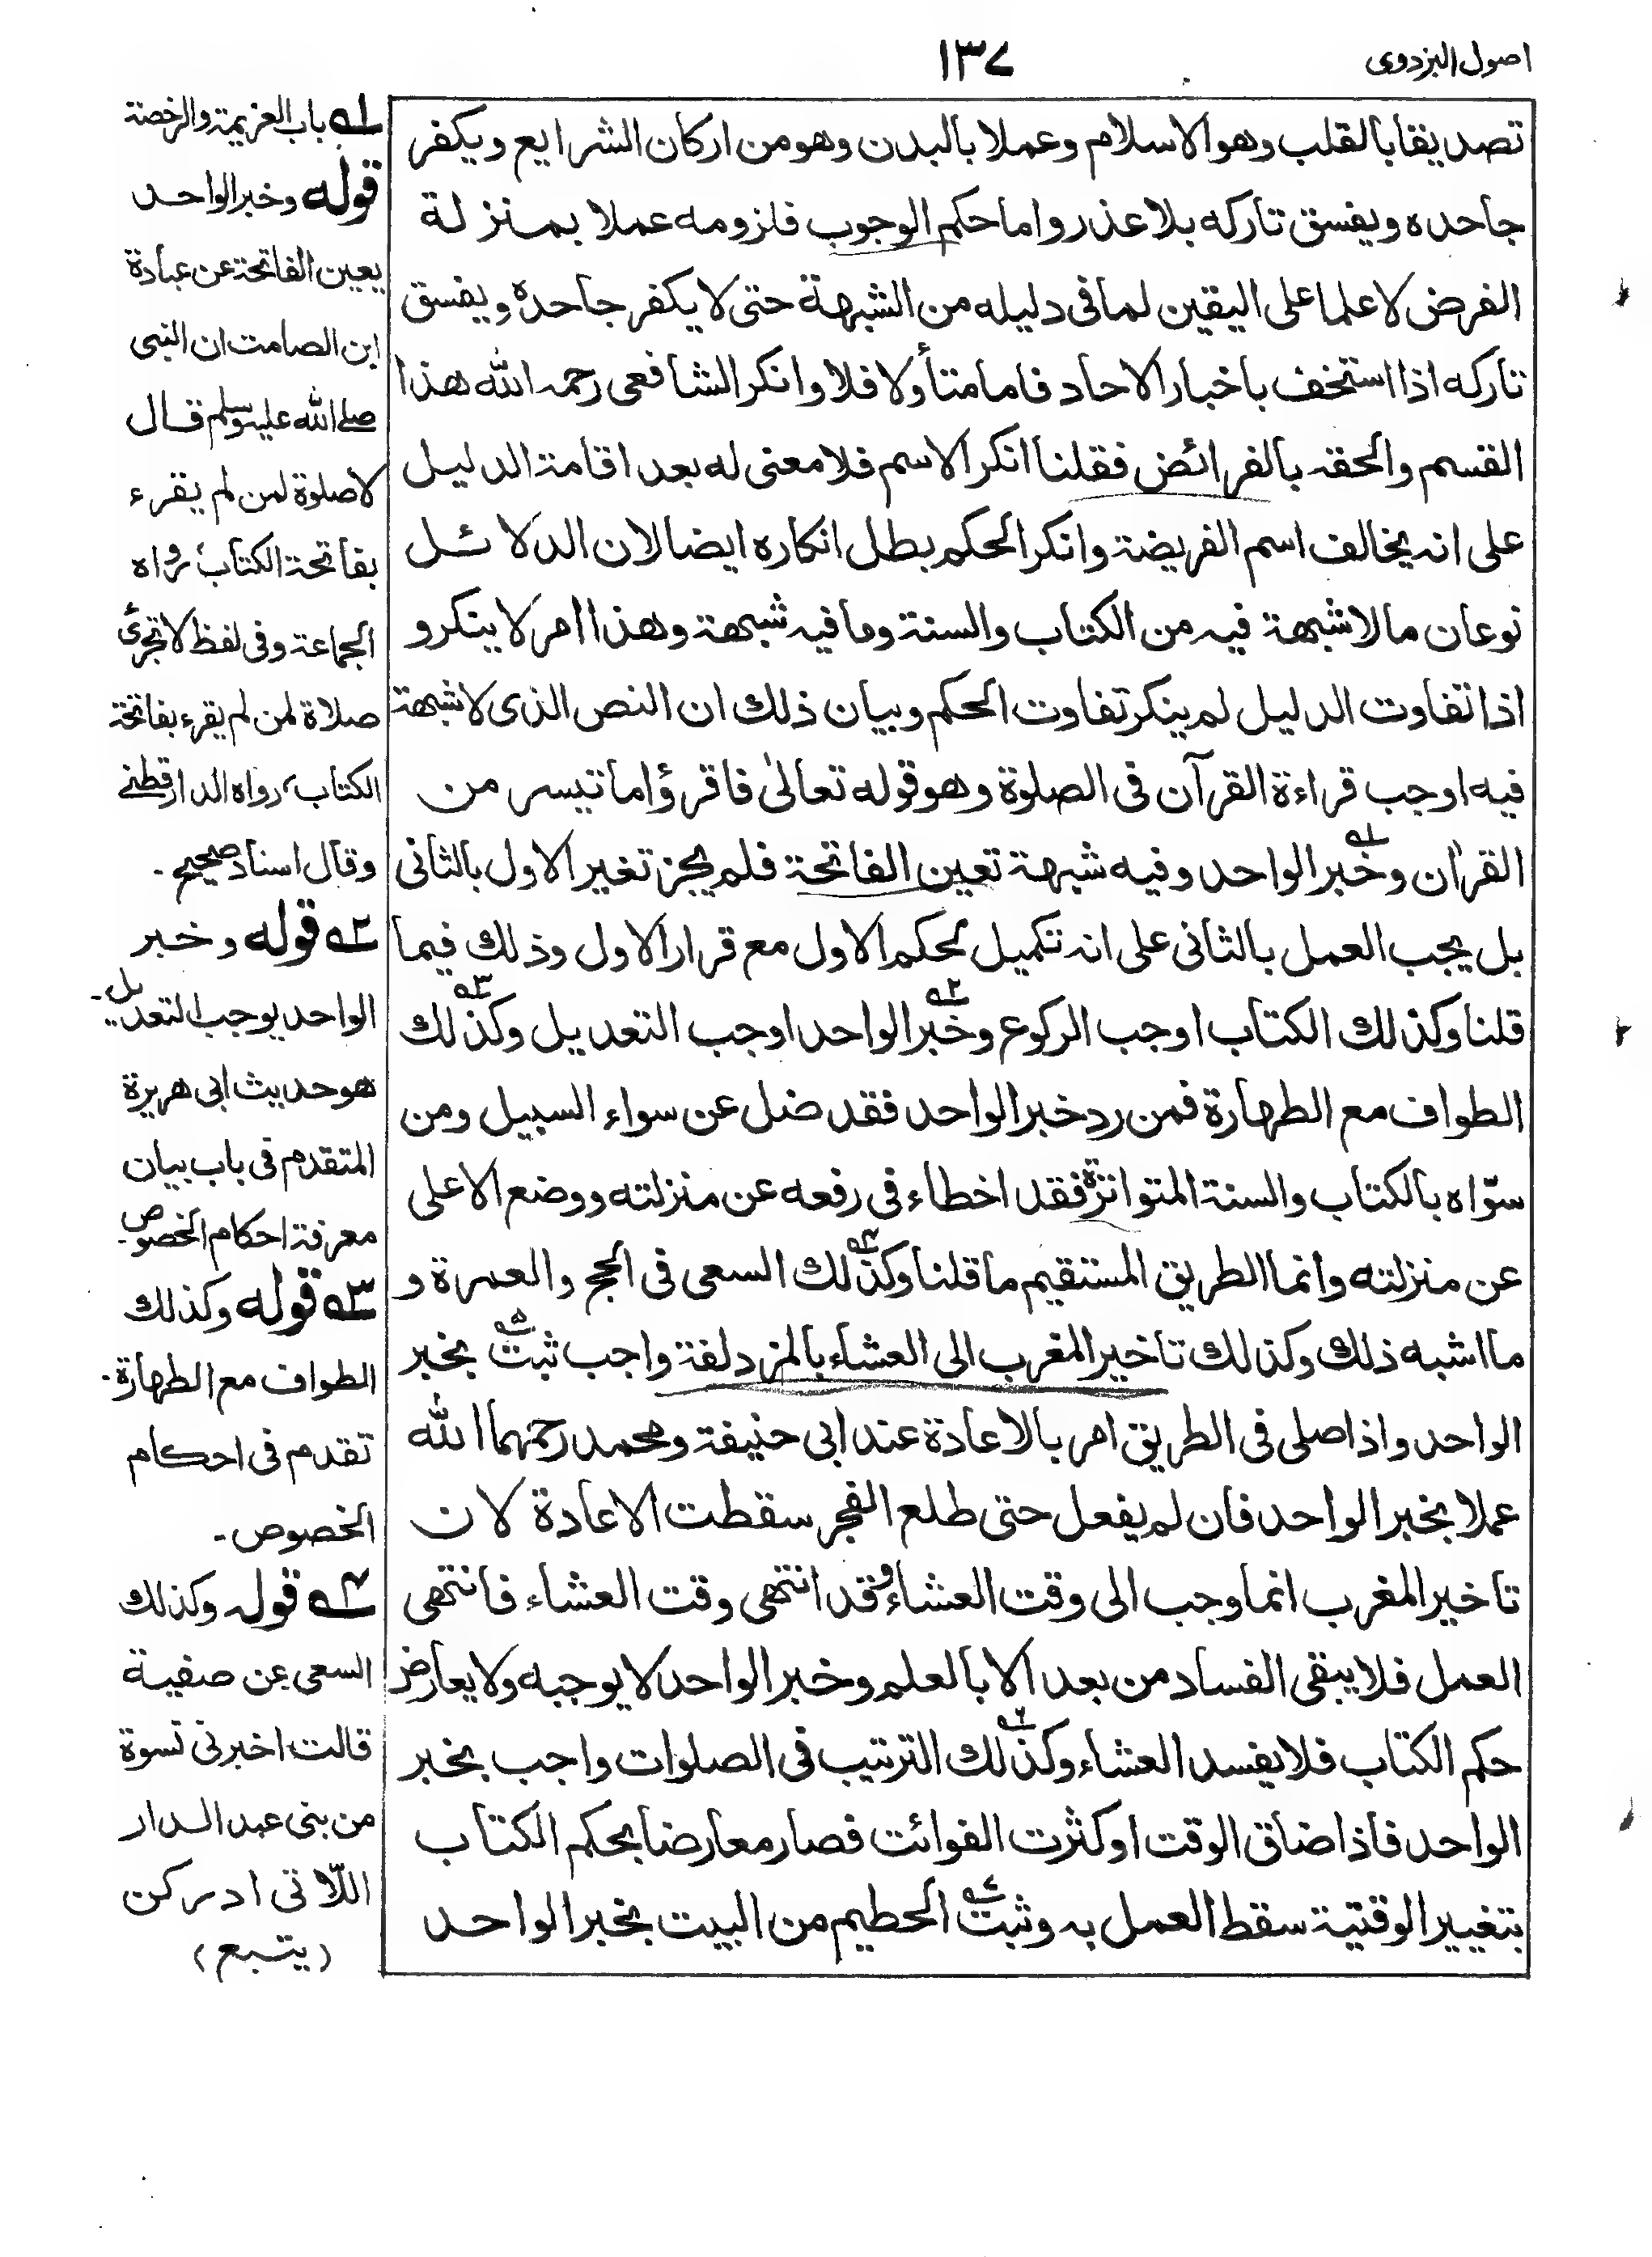 اصول البزدوی
١٣٧
تصديقا بالقلب وهو الاسلام وعملا بالبدن وهو من اركان الشرايع ويكفر
جاحده ويفسق تاركه بلا عذر واما حكم الوجوب فلزومه عملا بمنزلة
الفرض لا علما على اليقين لما فى دليله من الشبهة حتى لا يكفر جاحده ويفسق
تاركه اذا استخف باخبار الاحاد فاما متأولا فلا وانكر الشافعى رحمه الله هذا
القسم والحقه بالفرائض فقلنا انكر الاسم فلا معنى له بعد اقامة الدليل
على انه يخالف اسم الفريضة وانكر الحكم بطل انكاره ايضا لان الدلائل
نوعان مالا شبهة فيه من الكتاب والسنة وما فيه شبهة وهذا امر لا ينكر و
اذا تفاوت الدليل لم ينكر تفاوت الحكم وبيان ذلك ان النص الذى لا شبهة
فيه اوجب قراءة القرآن فى الصلوة وهو قوله تعالىٰ فاقرؤا ما تيسر من
القرأن وخبر الواحد وفيه شبهة تعين الفاتحة فلم يجز تغير الاول بالثانى
بل يجب العمل بالثانى على انه تكميل لحكم الاول مع قرار الاول وذلك فيما
قلنا وكذلك الكتاب اوجب الركوع وخبر الواحد اوجب التعديل وكذلك
الطواف مع الطهارة فمن رد خبر الواحد فقد ضل عن سواء السبيل ومن
سوّاه بالكتاب والسنة المتواترة فقد اخطاء فى رفعه عن منزلته ووضع الاعلى
عن منزلته وانما الطريق المستقيم ما قلنا وكذلك السعى فى الحج والعمرة و
ما اشبه ذلك وكذلك تاخير المغرب الى العشاء بالمزدلفة واجب ثبت بخبر
الواحد واذا صلى فى الطريق امر بالاعادة عند ابى حنيفة ومحمد رحمهما الله
عملا بخبر الواحد فان لم يفعل حتى طلع الفجر سقطت الاعادة لان
تاخير المغرب انما وجب الى وقت العشاء وقد انتهى وقت العشاء فانتهى
العمل فلا يبقى الفساد من بعد الا بالعلم وخبر الواحد لا يوجبه ولا يعارض
حكم الكتاب فلا يفسد العشاء وكذلك الترتيب فى الصلوات واجب بخبر
الواحد فاذا ضاق الوقت او كثرت الفوائت فصار معارضا بحكم الكتاب
بتغيير الوقتية سقط العمل به وثبت الحطيم من البيت بخبر الواحد
١ـه باب العزيمة والرخصة
قوله وخبر الواحد
يعين الفاتحة عن عبادة
ابن الصامت ان النبى
صلے الله عليه وسلم قال
لا صلوة لمن لم يقرء
بفاتحة الكتاب رواه
الجماعة وفى لفظ لا تجزئ
صلاة لمن لم يقرء بفاتحة
الكتاب، رواه الدارقطنے
وقال اسناد صحيح۔
٢ـه قوله وخبر
الواحد يوجب التعديل۔
هو حديث ابى هريرة
المتقدم فى باب بيان
معرفة احكام الخصوص۔
٣ـه قوله وكذلك
الطواف مع الطهارة۔
تقدم فى احكام
الخصوص۔
٤ـه قوله وكذلك
السعى عن صفية
قالت اخبرتنى نسوة
من بنى عبد الدار
اللّاتى ادركن
(يتبع)